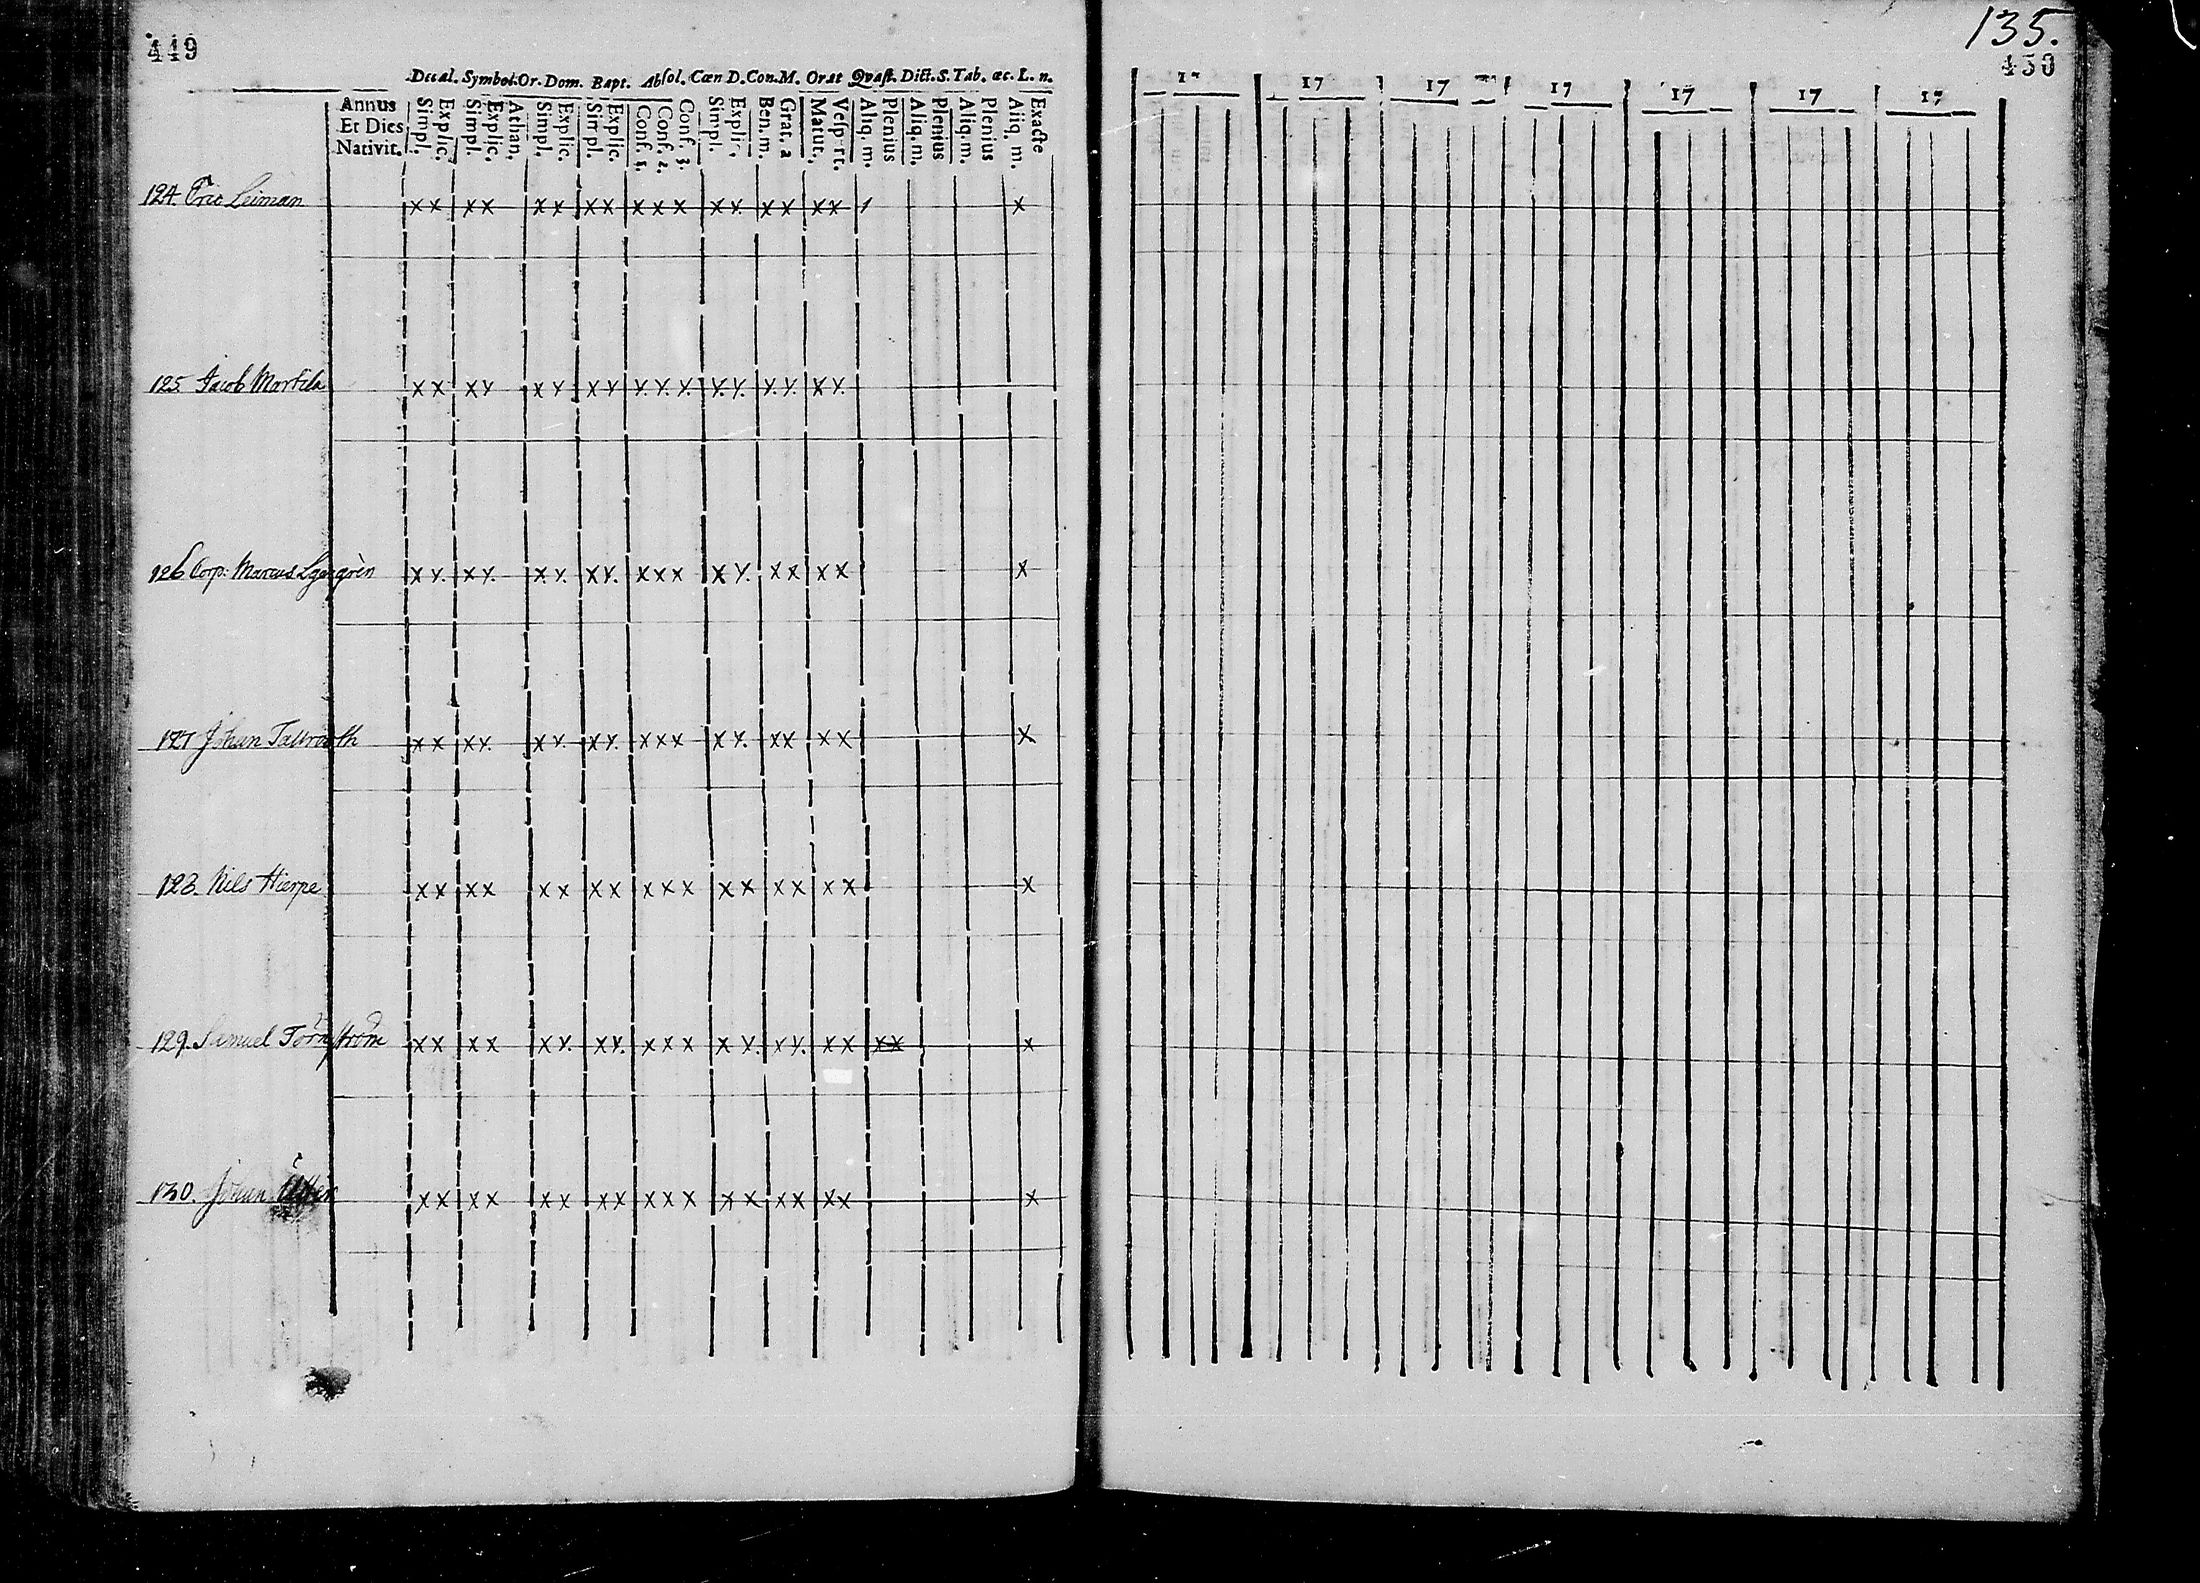 449
135.
450
Decal. Symbol. Or. Dom. Bapt. Absol. Cœn D. Con. M. Orat Qvæst. Dict. S. Tab. œc. L. n.
Annus
Et Dies
Nativit.
Simpl. Explic. Simpl. Explic. Athan. Simpl. Explic. Simpl. Explic. Conf. 1. Conf. 2. Conf. 3. Simpl. Explic. Ben. m. Grat. a Matut. Vesp-rt. Aliq. m. Plenius Aliq. m. Plenius Aliq. m. Plenius Aliq. m. Exacte
17 17 17 17 17 17
124. Eric Leiman x x x x x x x x x x x x x x x x x x
125. Jacob Martila x x x x x x x x x x x x x x x x x
126 Corp: Marcus x x x x x x x x x x x x x x x x x x
127 Johan x x x x x x x x x x x x x x x x x x
128. Nils Hierpe x x x x x x x x x x x x x x x x x x
129. Samuel Törnström x x x x x x x x x x x x x x x x x x x x
130. Johan x x x x x x x x x x x x x x x x x x